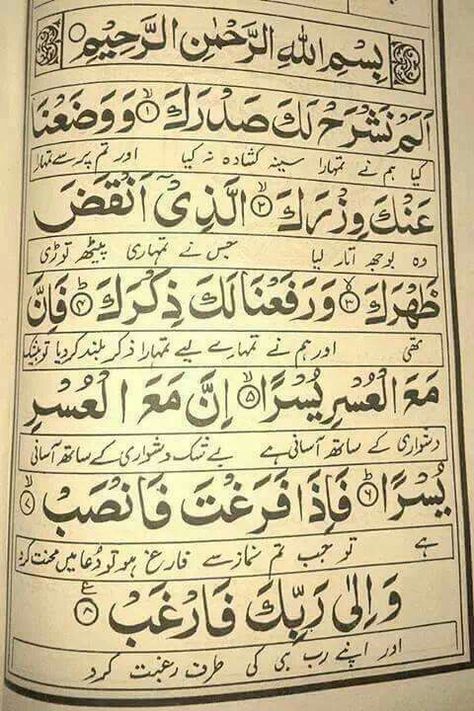 بِسْمِ اللهِ الرَّحْمٰنِ الرَّحِيْمِ
اَلَمْ نَشْرَحْ لَكَ صَدْرَكَ ۙ﴿۱﴾ وَوَضَعْنَا
کیا ہم نے تمہارا سینہ کشادہ نہ کیا اور تم پر سے تمہارا
عَنْكَ وِزْرَكَ ۙ﴿۲﴾ الَّذِيْٓ اَنْقَضَ
وہ بوجھ اتار لیا جس نے تمہاری پیٹھ توڑی
ظَهْرَكَ ۙ﴿۳﴾ وَرَفَعْنَا لَكَ ذِكْرَكَ ؕ﴿۴﴾ فَاِنَّ
تھی اور ہم نے تمہارے لیے تمہارا ذکر بلند کردیا تو بیشک
مَعَ الْعُسْرِ يُسْرًا ۙ﴿۵﴾ اِنَّ مَعَ الْعُسْرِ
دشواری کے ساتھ آسانی ہے بے شک دشواری کے ساتھ آسانی
يُسْرًا ؕ﴿۶﴾ فَاِذَا فَرَغْتَ فَانْصَبْ ۙ﴿۷﴾
ہے تو جب تم نماز سے فارغ ہو تو دُعا میں محنت کرو
وَاِلٰى رَبِّكَ فَارْغَبْ ﴿۸﴾ع
اور اپنے رب ہی کی طرف رغبت کرو